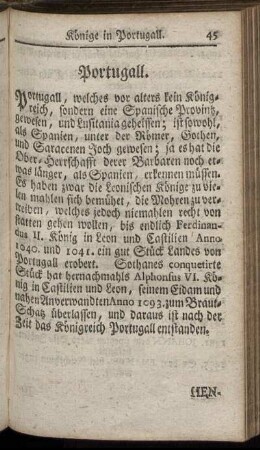 Könige in Portugall. 45
Portugall.
Portugall, welches vor alters kein König-
reich, sondern eine Spanische Provintz,
gewesen, und Lusitania geheissen; ist sowohl,
als Spanien, unter der Römer, Gothen,
und Saracenen Joch gewesen; ja es hat die
Ober-Herrschafft derer Barbaren noch et-
was länger, als Spanien, erkennen müssen.
Es haben zwar die Leonischen Könige zu vie-
len mahlen sich bemühet, die Mohren zu ver-
treiben, welches jedoch niemahlen recht von
statten gehen wollen, bis endlich Ferdinan-
dus II. König in Leon und Castilien Anno
1040. und 1041. ein gut Stück Landes von
Portugall erobert. Sothanes conquetirte
Stück hat hernachmahls Alphonsus VI. Kö-
nig in Castilien und Leon, seinem Eidam und
nahen Anverwandten Anno 1093. zum Braut-
Schatz überlassen, und daraus ist nach der
Zeit das Königreich Portugall entstanden.
HEN-